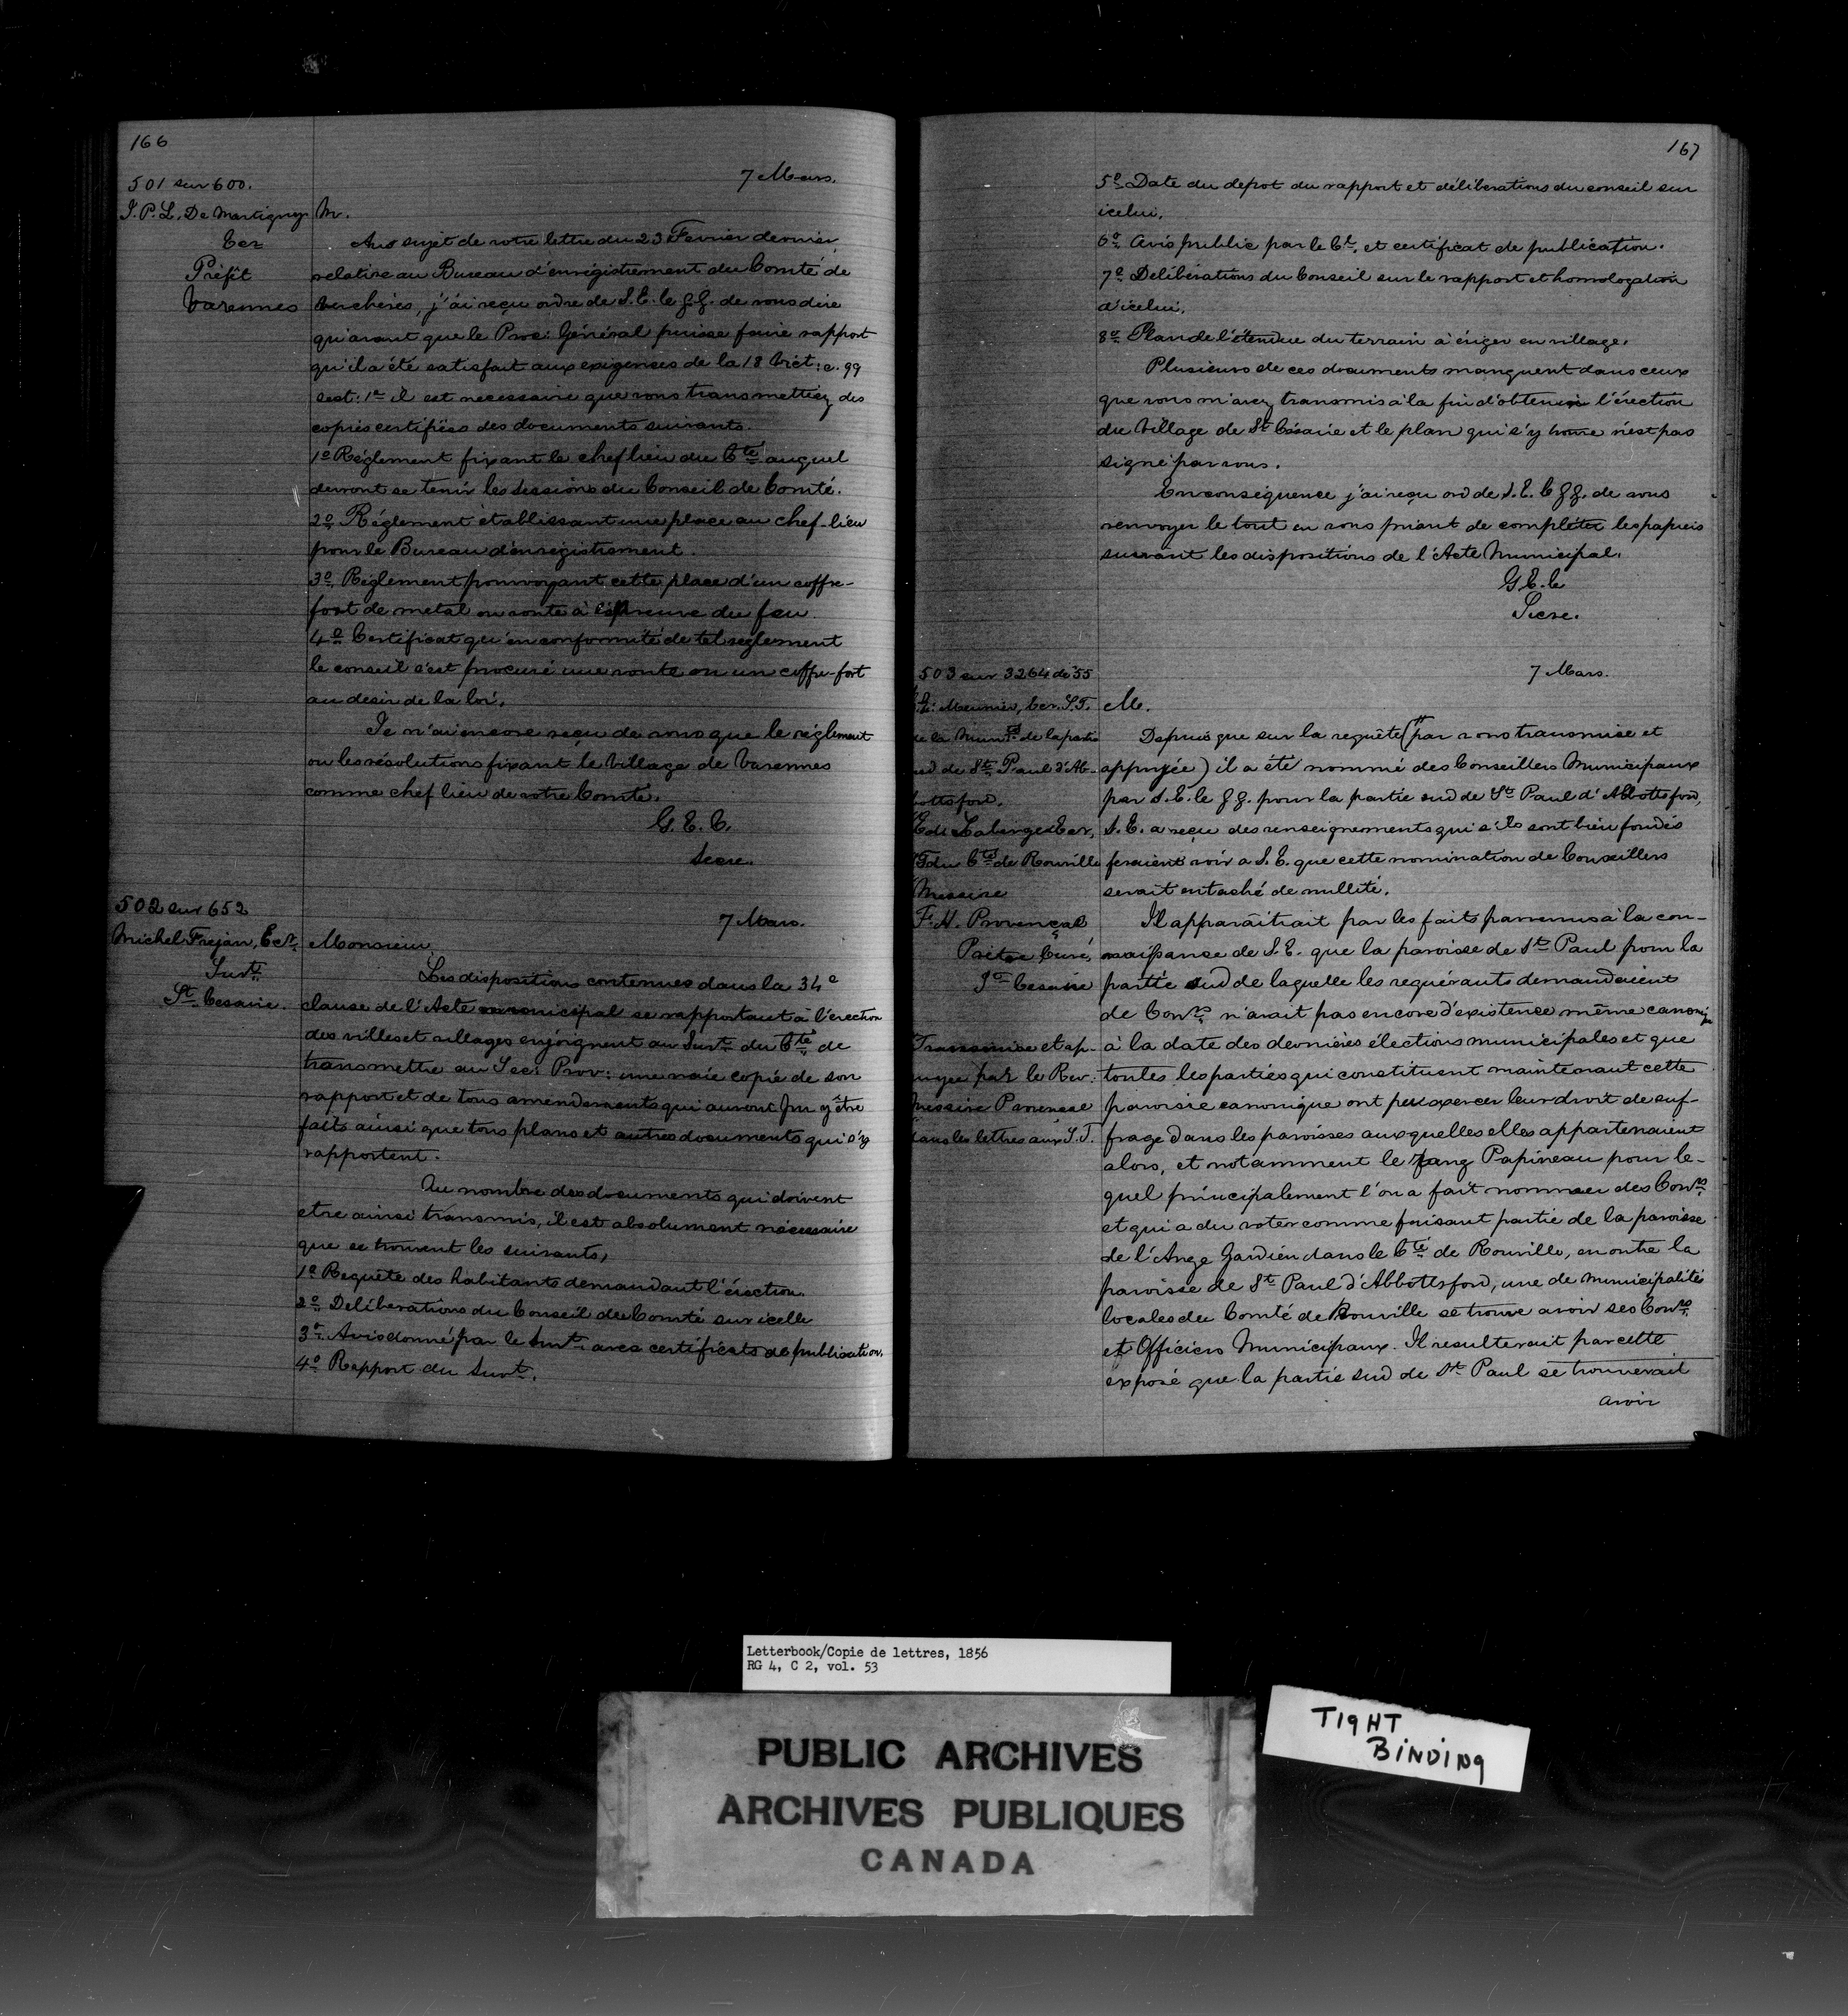 166
501 sur 600.
7 Mars.
J. P. L. De Martigny
Ecr
Préfêt
Varennes
M.
Au sujet de votre lettre du 23 Fevrier dernier,
relative au Bureau d'enrégistrement du Comté de
Verchères, j'ai reçu ordre de S. E. le g. g. de vous dire
qu'avant que le Proc: Général puisse faire rapport
qu'il a été satisfait aux exigenses de la 18 Vict: c. 99
sect: 1re il est necessaire que vous transmettiez des
copies certifiées des documents suivants.
1o Réglement fixant le chef lieu du Cté auquel
devront se tenir les sessions du Conseil de Comté.
2o Réglement établissant une place au chef-lieu
pour le Bureau d'enrégistrement.
3o Réglement pourvoyant cette place d'un coffre-
fort de metal ou voute à l'épreuve du feu
4o Certificat qu'en conformité de tel reglement
le conseil s'est procuré une voute ou un coffre-fort
au desir de la loi.
Je n'ai encore reçu de vous que le réglement
ou les résolutions fixant le Village de Varennes
comme chef lieu de votre Comté.
G. E. C.
Secre.
502 sur 652
7 Mars.
Michel Frejan, Ecr.
Surt.
St. Cesaire.
Monsieur,
Les dispositions contenues dans la 34e
clause de l'Acte municipal se rapportant à l'érection
des villes et villages enjoignent au Surt. du Cté de
transmettre au Sec: Prov: une vraie copie de son
rapport et de tous amendements qui auront pu y être
faits ainsi que tous plans et autres documents qui s'y
rapportent.
Au nombre des documents qui doivent
etre ainsi transmis, il est absolument nécessaire
que se trouvent les suivants,
1o Requête des habitants demandant l'érection.
2o Delibérations du Conseil de Comté sur icelle
3o Avis donné par le Surt. avec certificats de publication.
4o Rapport du Surt.
167
5o Date du depot du rapport et délibérations du conseil sur
icelui.
6o Avis public par le Ct. et certificat de publication.
7o Delibérations du Conseil sur le rapport et homologation
d'icelui.
8o Plan de l'étendue du terrain à ériger en village.
Plusieurs de ces documents manquent dans ceux
que vous m'avez transmis à la fin d'obtenir l'érection
du Village de St Césaire et le plan qui s'y trouve n'est pas
signé par vous.
En conséquence j'ai reçu ord de S. E. le g g. de vous
renvoyer le tout en vous priant de compléter les papiers
suivant les dispositions de l'Acte Municipal.
G E. C
Secre.
503 sur 3264 de 55
7 Mars.
Meunier, Ecr. S. T.
de la Munté. de la partie
sud de St. Paul d'Ab-
bottsford.
Ed: Labirge Ecr,
du Cté de Rouville
Messire
F. H. Provençal
Prêtre Curé,
St. Cesaire
Transmise et ap-
puyée par le Rev:
Messire Provencal
dans les lettres aux S. T.
M.
Depuis que sur la requête (# par vous transmise et
appuyée) il a été nommé des Conseillers Municipaux
par S. E. le g g. pour la partie sud de St. Paul d'Abbottsford,
S. E. a reçu des renseignements qui s'ils sont bien fondés
feraient voir a S. E. que cette nomination de Conseillers
serait entaché de nullité.
Il apparaîtrait par les faits parvenus à la con-
naissance de S. E. que la paroisse de St Paul pour la
partie sud de laquelle les requérants demandaient
de Conrs. n'avait pas encore d'existence même canoniq
à la date des dernières élections municipales et que
toutes les parties qui constituent maintenant cette
paroisse canonique ont pu exercer leur droit de suf-
frage dans les paroisses auxquelles elles appartenaient
alors, et notamment le rang Papineau pour le-
quel principalement l'on a fait nommer des Conrs.
et qui a du voter comme faisant partie de la paroisse
de l'Ange Gardien dans le Cté de Rouville, en outre la
paroisse de St Paul d'Abbottsford, une de municipalités
locales du Comté de Rouville se trouve avoir ses Conrs.
et Officiers Municipaux. Il resulterait par cette
exposé que la partie sud de St. Paul se trouverait
avoir
Letterbook/Copie de lettres, 1856
RG 4, C 2, vol. 53
PUBLIC ARCHIVES
ARCHIVES PUBLIQUES
CANADA
TIGHT
BINDING